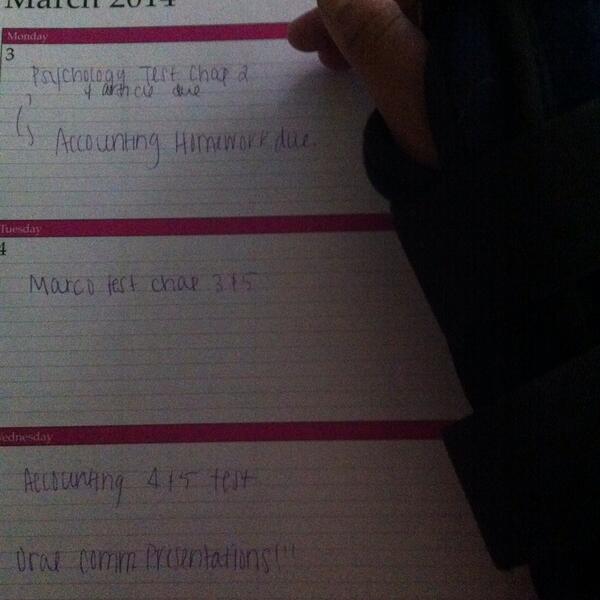 March 2014
Monday
3
Psychology Test Chap 2
+ article due
Accounting Homework due.
Tuesday
4
Marco test chap 3+5
Wednesday
Accounting 4+5 test
Oral comm Presentations!!!